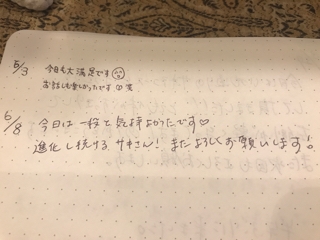 5/3 今日も大満足です
お話しも楽しかったです 笑
6/8 今日は一段と気持よかったです♡
進化し続けるサキさん! またよろしくお願いします!